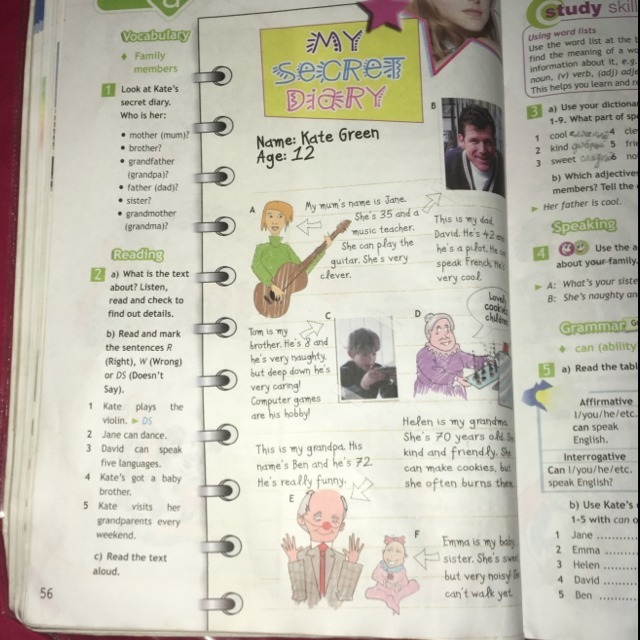 Vocabulary
♦ Family
members
1 Look at Kate's
secret diary.
Who is her:
• mother (mum)?
• brother?
• grandfather
(grandpa)?
• father (dad)?
• sister?
• grandmother
(grandma)?
Reading
2 a) What is the text
about? Listen,
read and check to
find out details.
b) Read and mark
the sentences R
(Right), W (Wrong)
or DS (Doesn't
Say).
1 Kate plays the
violin. ► DS
2 Jane can dance.
3 David can speak
five languages.
4 Kate's got a baby
brother.
5 Kate visits her
grandparents every
weekend.
c) Read the text
aloud.
56
MY
SECRET
DIARY
Name: Kate Green
Age: 12
A
My mum's name is Jane.
She's 35 and a
music teacher.
She can play the
guitar. She's very
clever.
B
This is my dad
David. He's 42 and
he's a pilot. He
speak French. He's
very cool.
C
Tom is my
brother. He's 8 and
he's very naughty,
but deep down he's
very caring!
Computer games
are his hobby!
D
Lovely
cookies
children
Helen is my grandma.
She's 70 years old. She
kind and friendly. She
can make cookies, but
she often burns them
This is my grandpa. His
name's Ben and he's 72.
He's really funny.
E
F
Emma is my baby
sister. She's
but very noisy!
can't walk yet.
study
Using word lists
Use the word list at the
find the meaning of a
information about it, e.g.
noun, (v) verb, (adj)
This helps you learn and
3 a) Use your
1-9. What part of
1 cool 4
2 kind 5
3 sweet 6
b) Which
members? Tell the
► Her father is cool.
Speaking
4 Use the
about your family.
► A: What's your
B: She's naughty
Grammar
♦ can (ability
5 a) Read the
Affirmative
I/you/he/etc.
can speak
English.
Interrogative
Can I/you/he/etc.
speak English?
b) Use Kate's
1-5 with can
1 Jane
2 Emma
3 Helen
4 David
5 Ben